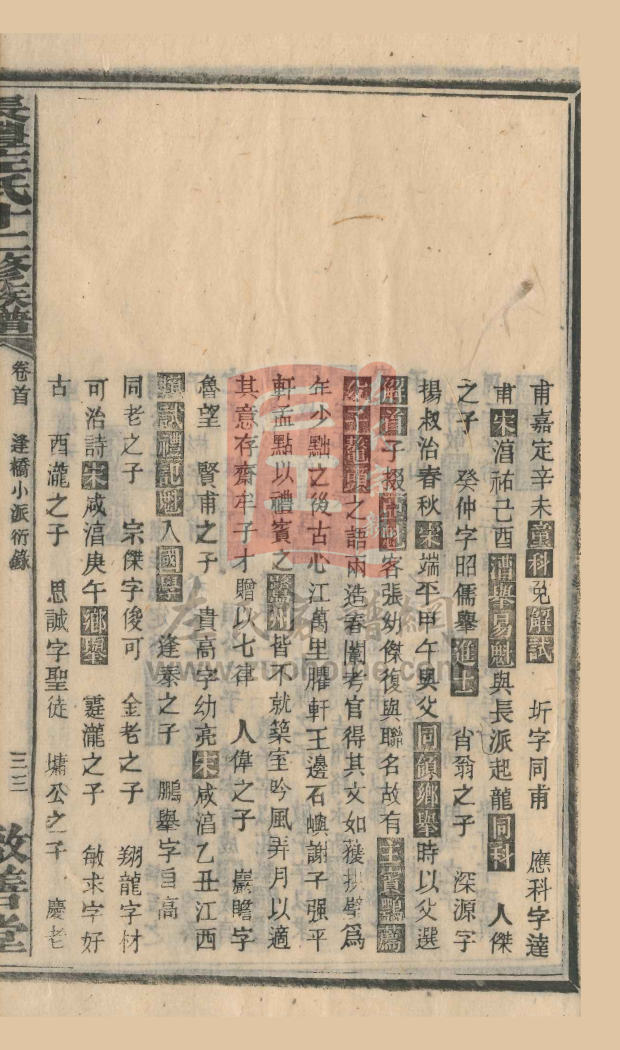 甫嘉定辛未童科免解試　圻字同甫　應科字達
甫宋淳祐己酉漕舉易魁與長派起龍同科　人傑
之子　癸仲字昭儒舉進士　肖翁之子　深源字
揚叔治春秋宋端平甲午與父同領鄉舉時以父選
解首子掇 魁客張幼傑復與聯名故有主賓鸚薦
父子鰲頭之語兩造春闈考官得其文如獲拱璧爲
年少黜之後古心江萬里臞軒王邁石嶼謝子强平
軒孟點以禮賓之 州皆不就築室吟風弄月以適
其意存齋牟子才贈以七律　人偉之子　巖瞻字
魯望　賢甫之子　貴高字幼亮宋咸淳乙丑江西
類試禮記魁入國學　逢泰之子　鵬舉字自高
同老之子　宗傑字俊可　金老之子　翔龍字材
可治詩宋咸淳庚午鄉舉　霆瀧之子　敏求字好
古　酉瀧之子　思誠字聖徒　墉公之子　慶老
長豐左氏十二修族譜
卷首　逢橋小派衍錄
三三
敦善堂
左氏家譜網
www.zuohome.com